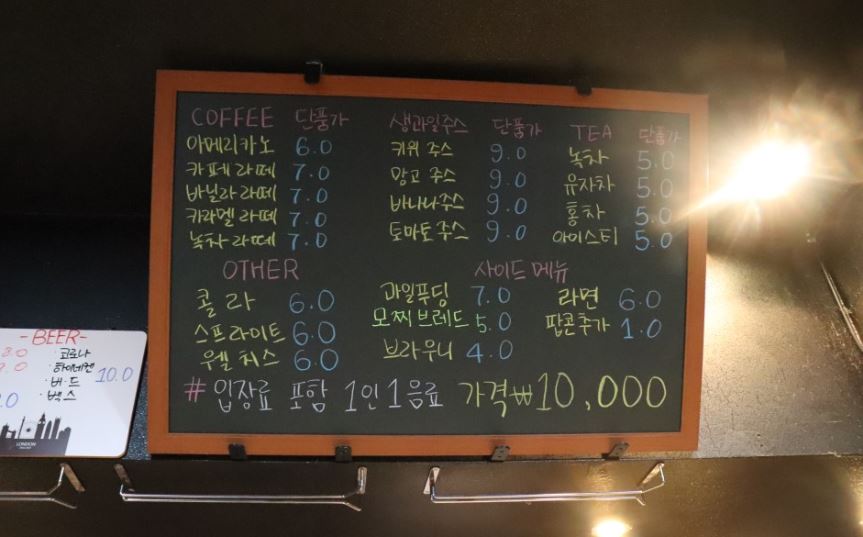 COFFEE 단품가
아메리카노 6.0
카페라떼 7.0
바닐라라떼 7.0
카라멜라떼 7.0
녹차라떼 7.0
생과일주스 단품가
키위 주스 9.0
망고 주스 9.0
바나나주스 9.0
토마토주스 9.0
TEA 단품가
녹차 5.0
유자차 5.0
홍차 5.0
아이스티 5.0
OTHER
콜라 6.0
스프라이트 6.0
웰치스 6.0
사이드 메뉴
과일푸딩 7.0
모찌브레드 5.0
브라우니 4.0
라면 6.0
팝콘추가 1.0
# 입장료 포함 1인 1음료 가격₩10,000
-BEER-
8.0 · 코로나
9.0 · 하이네켄
· 버드 10.0
· 벡스
LONDON